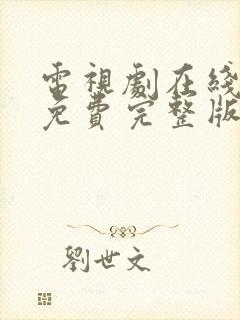 電視劇在綫
免費完整版
劉世文